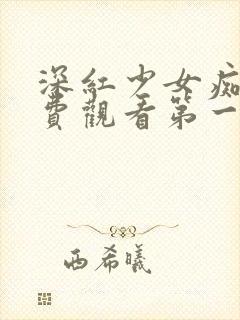 深紅少女痴
費觀看第一
西希曦